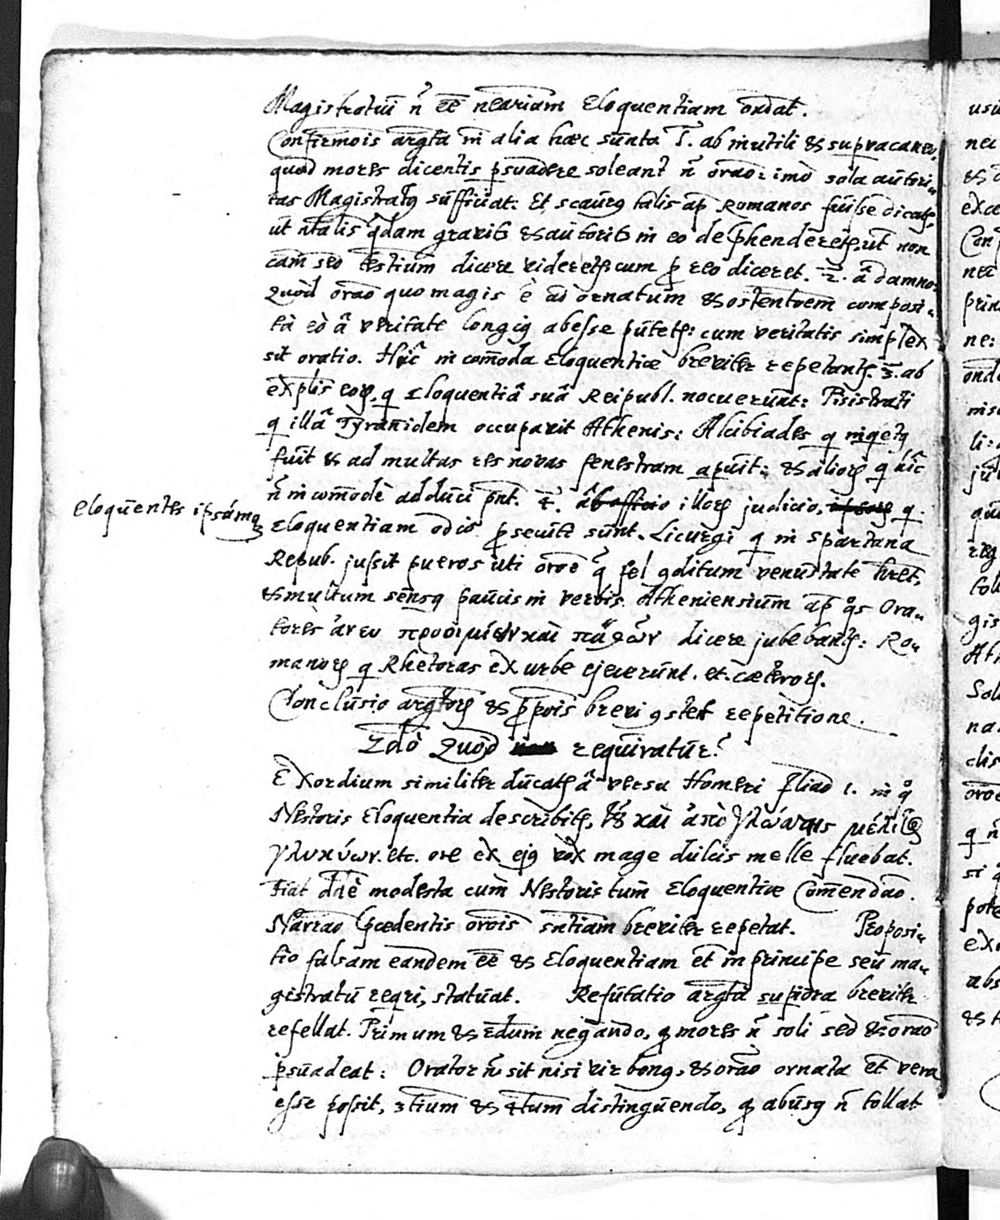 Magistratuī n̄ eē neāriam Eloquentiam ondāt.
Confirmōis argtā in alia hæc sunto I. ab inutili & supvacaneo,
quod mores dicentis psuadere soleant n̄ orāo: imò sola autori-
tas Magistratq̨ sufficiat. Et scaurq̨ talis ap̄ Romanos fuisse dicatr,
ut n̄talis q̄dam gravits & autorits in eo dephenderetr, ut non
cām sed testium dicere videretr cum p reo diceret. 2. ā damno:
Quòd orāo quo magis ē ad ornatum & ostentōem composi-
tā eò ā veritate longiq̨ abesse putetr: cum veritatis simplex
sit oratio. Hūc incōmoda Eloquentiæ breviter repetantr. 3. ab
explis eor, q Eloquentiā suā Reipubl. nocuerunt: Pisistrati
q illā Tyranidem occupavit Athenis: Alcibiades q
fuit & ad multas res novas fenestram apuit: & alior q hīc
n̄ incōmodè adduci pn̄t. 4. ab officio illor judicio, ipsor q
Eloquentes ipsāmq̨
Eloquentiam odio psecuti sunt. Licurgi q in Spartana
Repub. jussit pueros uti orōe q̄ fel 9ditum venustate hret,
& multum sensq̨ paucis in verbis. Atheniensium ap̄ qs Ora-
tores ἄνευ προοιμίων καὶ παθῶν dicere jubebantr: Ro-
manor q Rhetoras ex urbe ejecerunt. et cæteror.
Conclusio argtor & ppōis brevi 9stet repetitione.
2dò Quòd non requiratur?
Exordium similiter ducatr ā versu Homeri Iliad 1. in q̊
Nestoris Eloquentia describitr, τȣ̃ καὶ ἀπὸ γλώσσης μέλιτος
γλυκίων. etc. ore ex ejq̨ vox mage dulcis melle fluebat.
Fiat dde modesta cum Nestoris tum Eloquentiæ Comendāo.
Nārrāo Præcedentis orōis sn̄tiam breviter repetat. Proposi-
tio falsam eandem eē & Eloquentiam et in principe seu ma-
gistratū reqri, statuat. Refutatio argtā supiōra breviter
refellat. Primum & 2dum negando, q mores n̄ soli sed & orāo
psuadeat: Orator n̄ sit nisi vir bonq̨, & orāo ornata et vera
esse possit, 3tium & 4tum distinguendo, q abusq̨ n̄ tollat